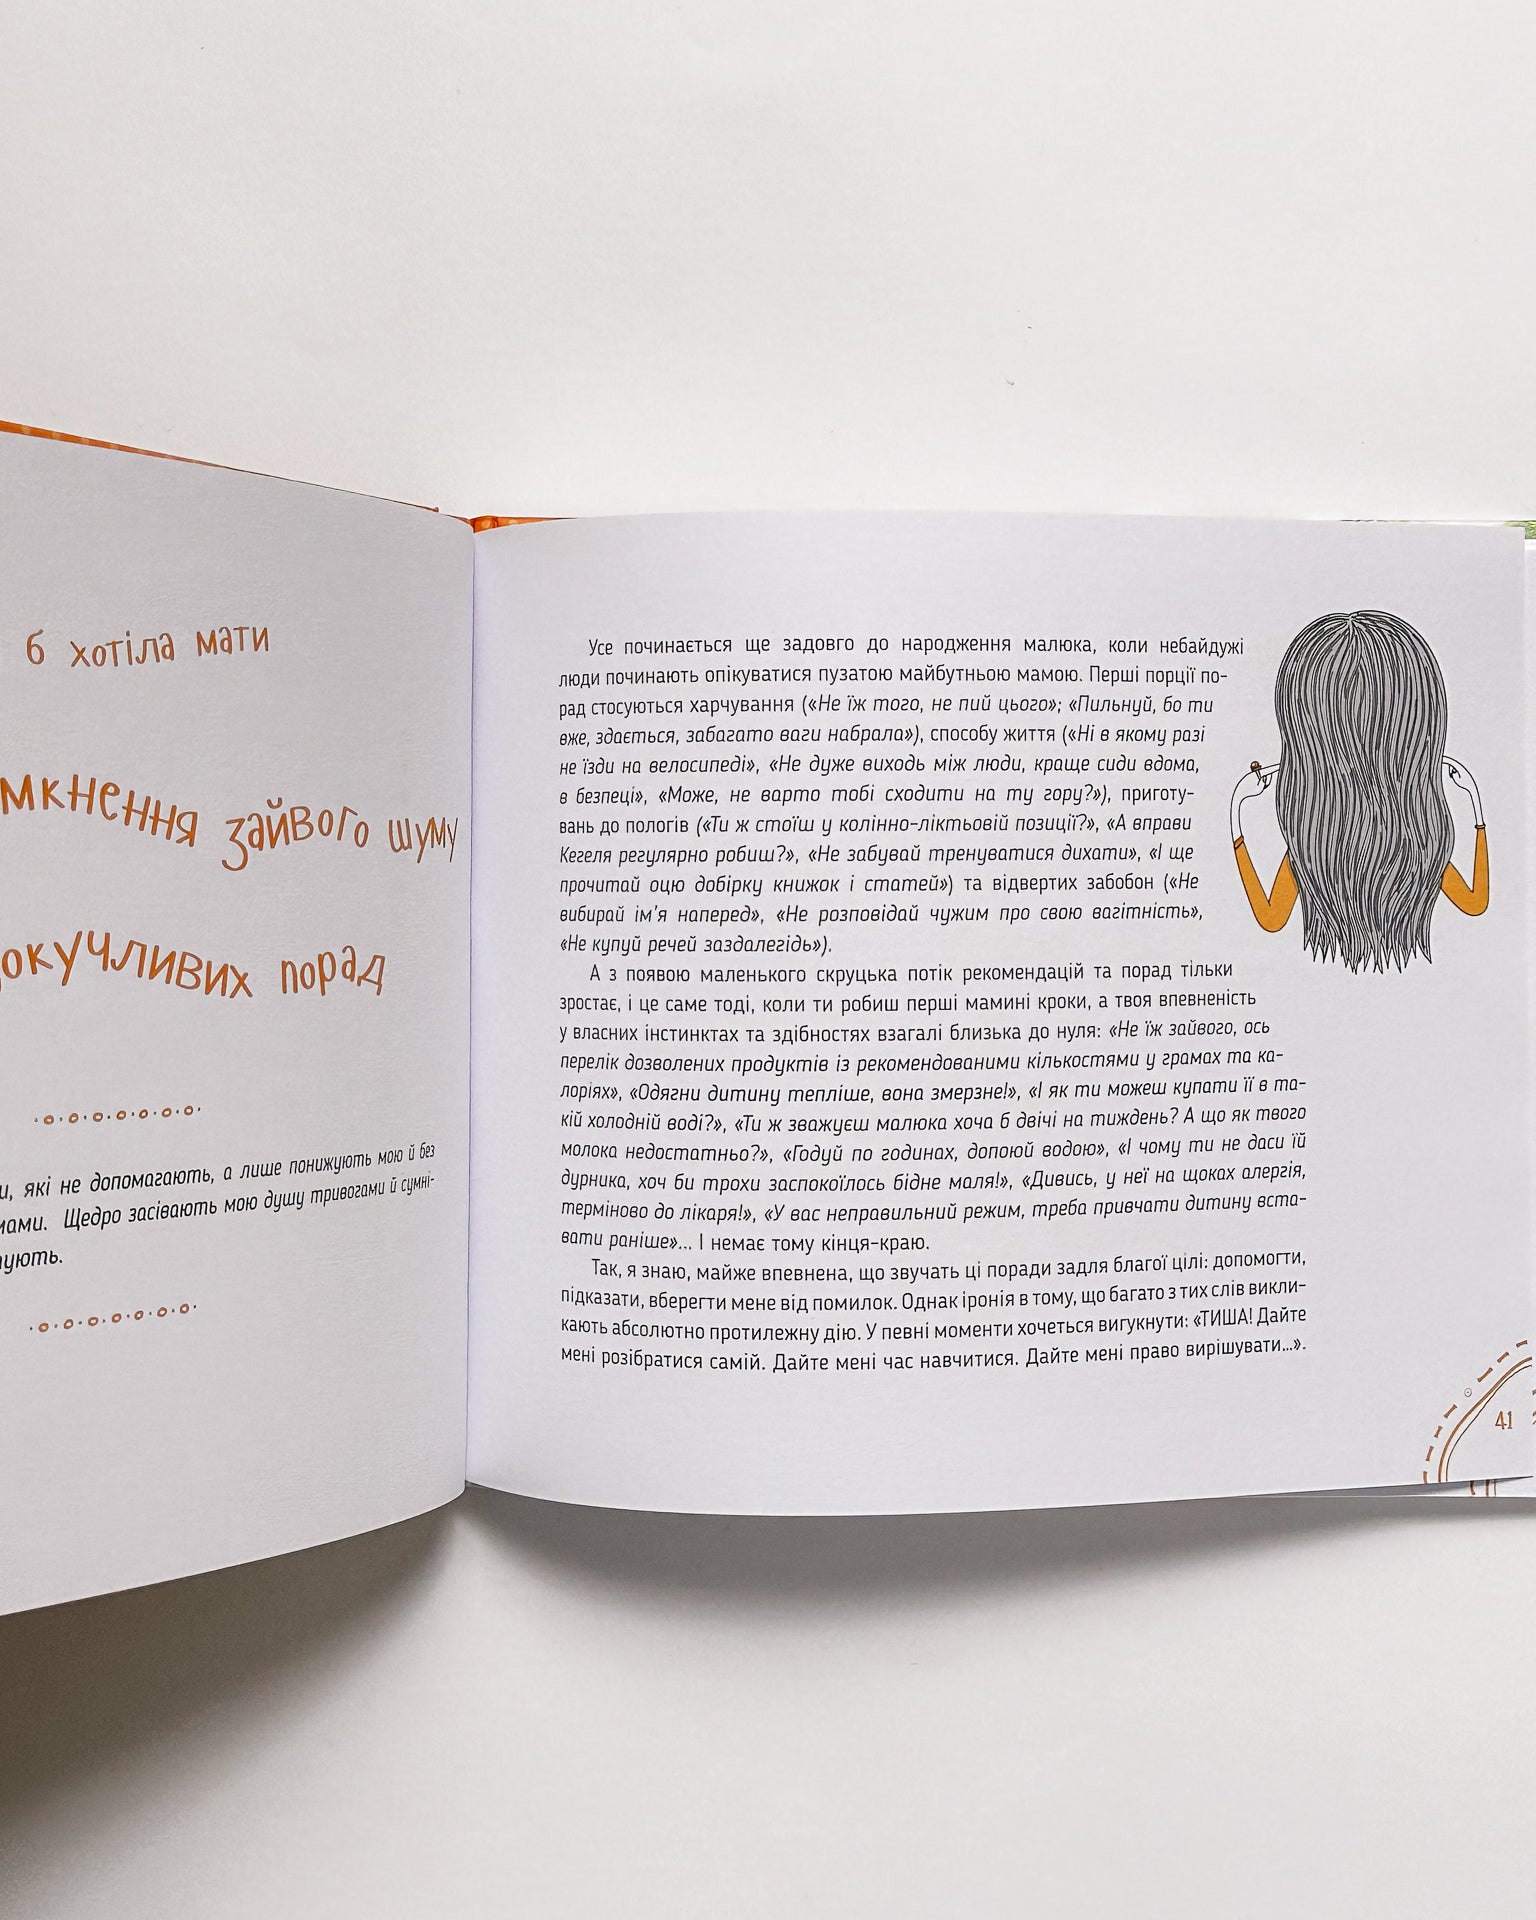 б хотіла мати
зайвого шуму
порад
які не допомагають, а лише понижують мою й без
Щедро засівають мою душу тривогами й сумні-
Усе починається ще задовго до народження малюка, коли небайдужі
люди починають опікуватися пузатою майбутньою мамою. Перші порції по-
рад стосуються харчування («Не їж того, не пий цього»; «Пильнуй, бо ти
вже, здається, забагато ваги набрала»), способу життя («Ні в якому разі
не їзди на велосипеді», «Не дуже виходь між люди, краще сиди вдома,
в безпеці», «Може, не варто тобі сходити на ту гору?»), приготу-
вань до пологів («Ти ж стоїш у колінно-ліктьовій позиції?», «А вправи
Кегеля регулярно робиш?», «Не забувай тренуватися дихати», «І ще
прочитай оцю добірку книжок і статей») та відвертих забобон («Не
вибирай ім’я наперед», «Не розповідай чужим про свою вагітність»,
«Не купуй речей заздалегідь»).
А з появою маленького скруцька потік рекомендацій та порад тільки
зростає, і це саме тоді, коли ти робиш перші мамині кроки, а твоя впевненість
у власних інстинктах та здібностях взагалі близька до нуля: «Не їж зайвого, ось
перелік дозволених продуктів із рекомендованими кількостями у грамах та ка-
лоріях», «Одягни дитину тепліше, вона змерзне!», «І як ти можеш купати її в та-
кій холодній воді?», «Ти ж зважуєш малюка хоча б двічі на тиждень? А що як твого
молока недостатньо?», «Годуй по годинах, допоюй водою», «І чому ти не даси їй
дурника, хоч би трохи заспокоїлось бідне маля!», «Дивись, у неї на щоках алергія,
терміново до лікаря!», «У вас неправильний режим, треба привчати дитину вста-
вати раніше»... І немає тому кінця-краю.
Так, я знаю, майже впевнена, що звучать ці поради задля благої цілі: допомогти,
підказати, вберегти мене від помилок. Однак іронія в тому, що багато з тих слів викли-
кають абсолютно протилежну дію. У певні моменти хочеться вигукнути: «ТИША! Дайте
мені розібратися самій. Дайте мені час навчитися. Дайте мені право вирішувати...».
41